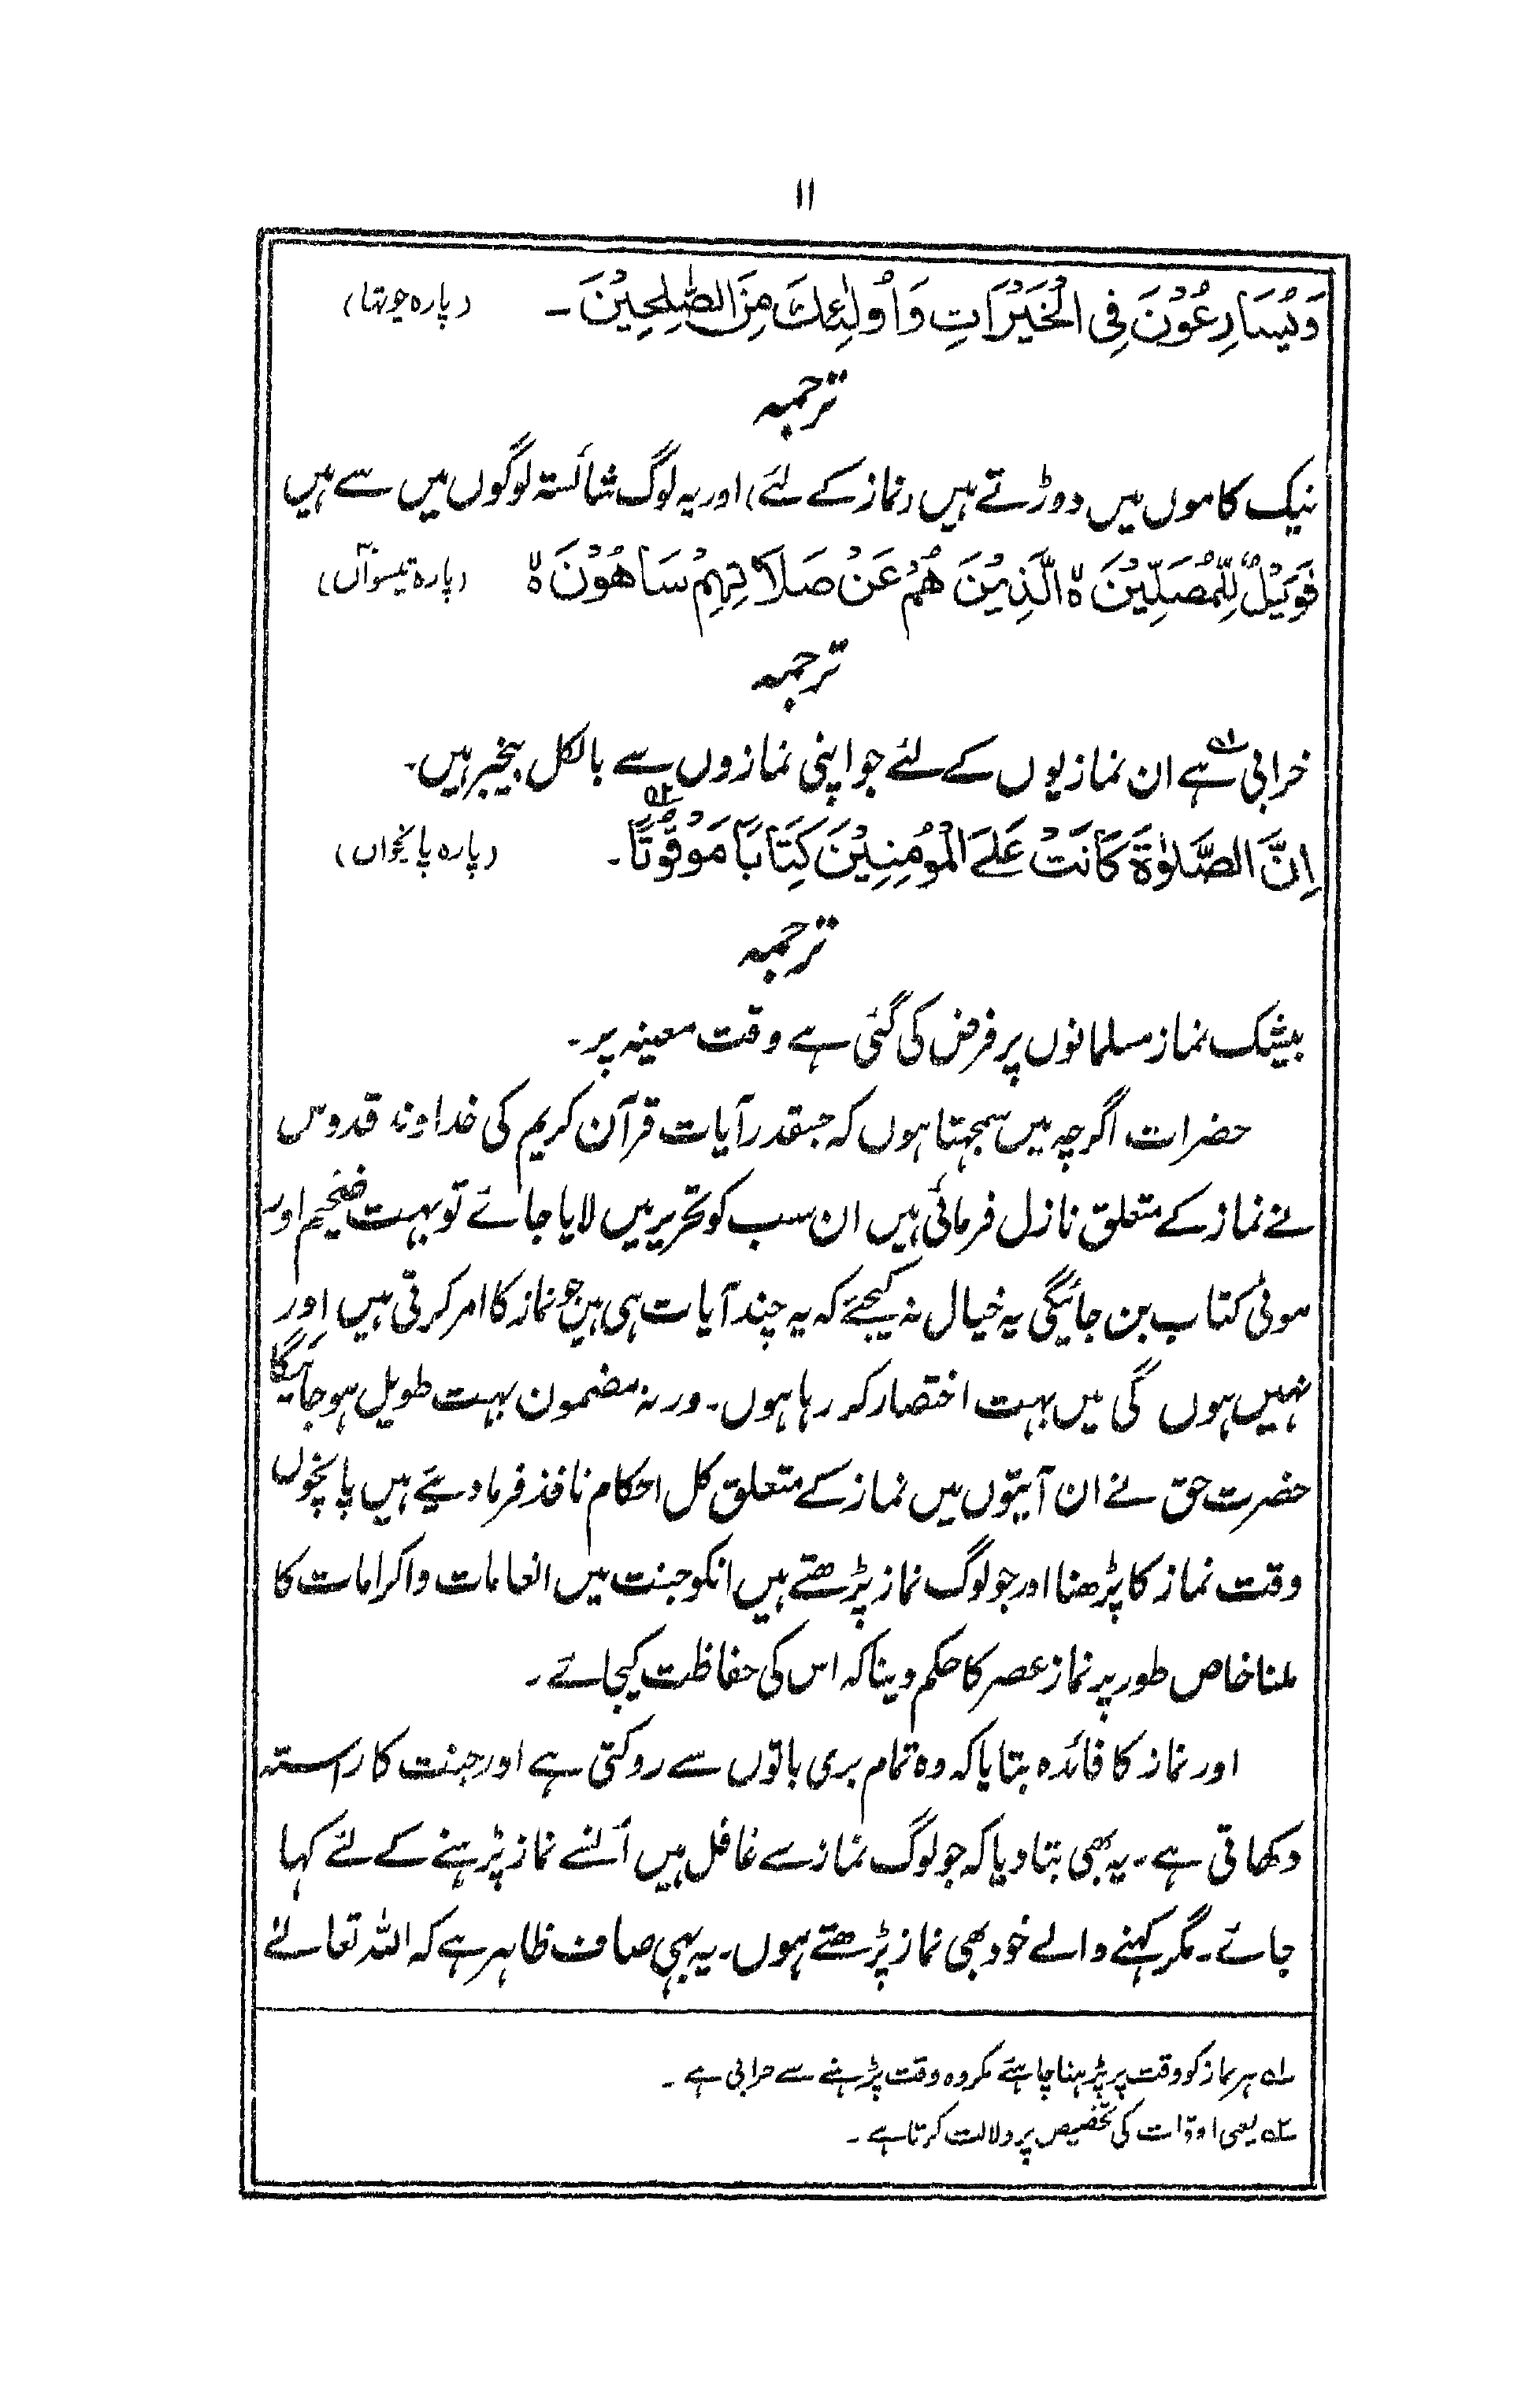 ۱۱
وَیُسَارِعُوْنَ فِی الْخَیْرَاتِ وَاُولٰئِكَ مِنَ الصّٰلِحِیْنَ ۔ (پارہ چوتہا)
ترجمہ
نیک کاموں میں دوڑتے ہیں (نماز کے لئے) اور یہ لوگ شائستہ لوگوں میں سے ہیں
فَوَیْلٌ لِّلْمُصَلِّیْنَ ۙ الَّذِیْنَ هُمْ عَنْ صَلَاتِهِمْ سَاهُوْنَ ۙ (پارہ تیسواں)
ترجمہ
خرابی ہے۱؎ ان نمازیوں کے لئے جو اپنی نمازوں سے بالکل بیخبر ہیں۔
اِنَّ الصَّلٰوةَ كَانَتْ عَلَی الْمُؤْمِنِیْنَ كِتَابًا مَّوْقُوْتًا۲؎ ۔ (پارہ پانچواں)
ترجمہ
بیشک نماز مسلمانوں پر فرض کی گئی ہے وقت معینہ پر۔
حضرات اگرچہ میں سمجہتا ہوں کہ جسقدر آیات قرآن کریم کی خداوند قدوس
نے نماز کے متعلق نازل فرمائی ہیں ان سب کو تحریر میں لایا جائے تو بہت ضخیم اور
موٹی کتاب بن جائیگی یہ خیال نہ کیجئے کہ یہ چند آیات ہی ہیں جو نماز کا امر کرتی ہیں اور
نہیں ہوں گی میں بہت اختصار کر رہا ہوں۔ ورنہ مضمون بہت طویل ہو جائیگا
حضرت حق نے ان آیتوں میں نماز کے متعلق کل احکام نافذ فرما دیئے ہیں پانچوں
وقت نماز کا پڑھنا اور جو لوگ نماز پڑھتے ہیں انکو جنت میں انعامات و اکرامات کا
ملنا خاص طور پر نماز عصر کا حکم دینا کہ اس کی حفاظت کیجائے۔
اور نماز کا فائدہ بتایا کہ وہ تمام بری باتوں سے روکتی ہے اور جنت کا راستہ
دکھاتی ہے۔ یہ بھی بتا دیا کہ جو لوگ نماز سے غافل ہیں اُنسے نماز پڑہنے کے لئے کہا
جائے۔ مگر کہنے والے خود بھی نماز پڑھتے ہوں۔ یہ بہی صاف ظاہر ہے کہ اللہ تعالےٰ
۱؎ ہر نماز کو وقت پر پڑہنا چاہئے مکروہ وقت پڑہنے سے خرابی ہے ۔
۲؎ یعنی اوقات کی تخصیص پر دلالت کرتا ہے ۔